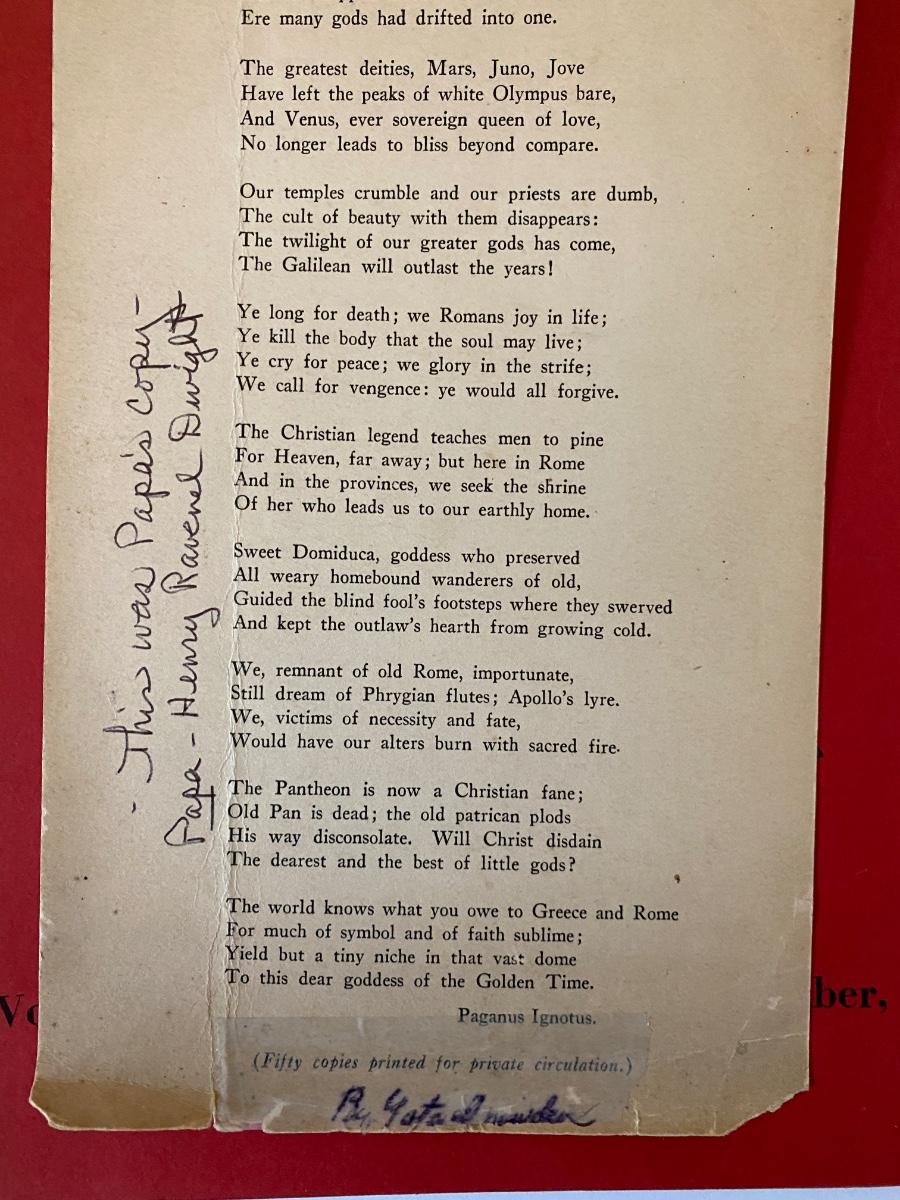 Ere many gods had drifted into one.
The greatest deities, Mars, Juno, Jove
Have left the peaks of white Olympus bare,
And Venus, ever sovereign queen of love,
No longer leads to bliss beyond compare.
Our temples crumble and our priests are dumb,
The cult of beauty with them disappears:
The twilight of our greater gods has come,
The Galilean will outlast the years!
Ye long for death; we Romans joy in life;
Ye kill the body that the soul may live;
Ye cry for peace; we glory in the strife;
We call for vengence: ye would all forgive.
The Christian legend teaches men to pine
For Heaven, far away; but here in Rome
And in the provinces, we seek the shrine
Of her who leads us to our earthly home.
Sweet Domiduca, goddess who preserved
All weary homebound wanderers of old,
Guided the blind fool's footsteps where they swerved
And kept the outlaw's hearth from growing cold.
We, remnant of old Rome, importunate,
Still dream of Phrygian flutes; Apollo's lyre.
We, victims of necessity and fate,
Would have our alters burn with sacred fire.
The Pantheon is now a Christian fane;
Old Pan is dead; the old patrican plods
His way disconsolate. Will Christ disdain
The dearest and the best of little gods?
The world knows what you owe to Greece and Rome
For much of symbol and of faith sublime;
Yield but a tiny niche in that vast dome
To this dear goddess of the Golden Time.
Paganus Ignotus.
(Fifty copies printed for private circulation.)
By
- This was Papa's copy -
Papa - Henry Ravenel Dwight
Vo
ber,